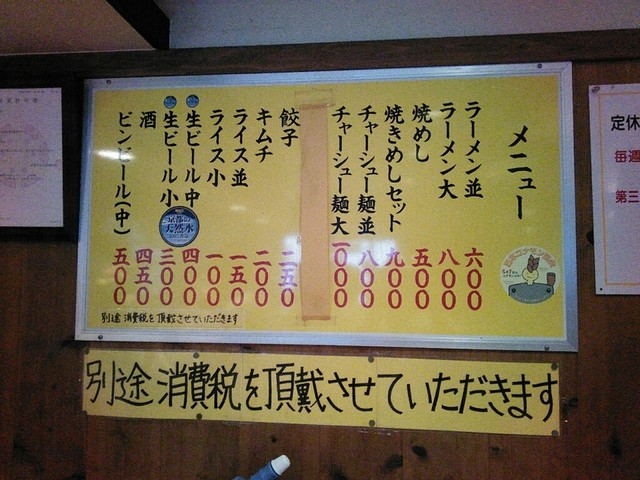 メニュー
ラーメン並 六〇〇
ラーメン大 八〇〇
焼めし 五〇〇
焼きめしセット 九〇〇
チャーシュー麺並 八〇〇
チャーシュー麺大 一〇〇〇
餃子 二五〇
キムチ 二〇〇
ライス並 一五〇
ライス小 一〇〇
生ビール中 四〇〇
生ビール小 三〇〇
酒 四五〇
ビンビール(中) 五〇〇
京都の
天然水
別途消費税を頂戴させていただきます
別途消費税を頂戴させていただきます
定休
毎週
第三